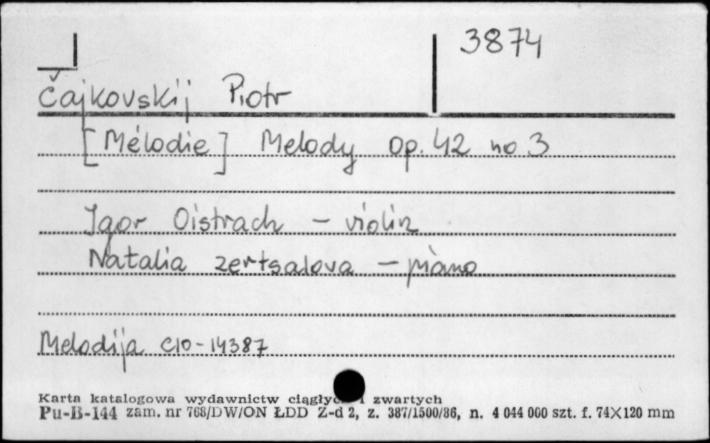 3874
Čajkovskij Piotr
[Mélodie] Melody op. 42 no 3
Igor Oistrach – violin
Natalia Zertsalova – piano
Melodija C10-14387
Karta katalogowa wydawnictw ciągłych i zwartych
Pu-B-144 zam. nr 768/DW/ON ŁDD Z-d 2, z. 387/1500/86, n. 4 044 000 szt. f. 74×120 mm